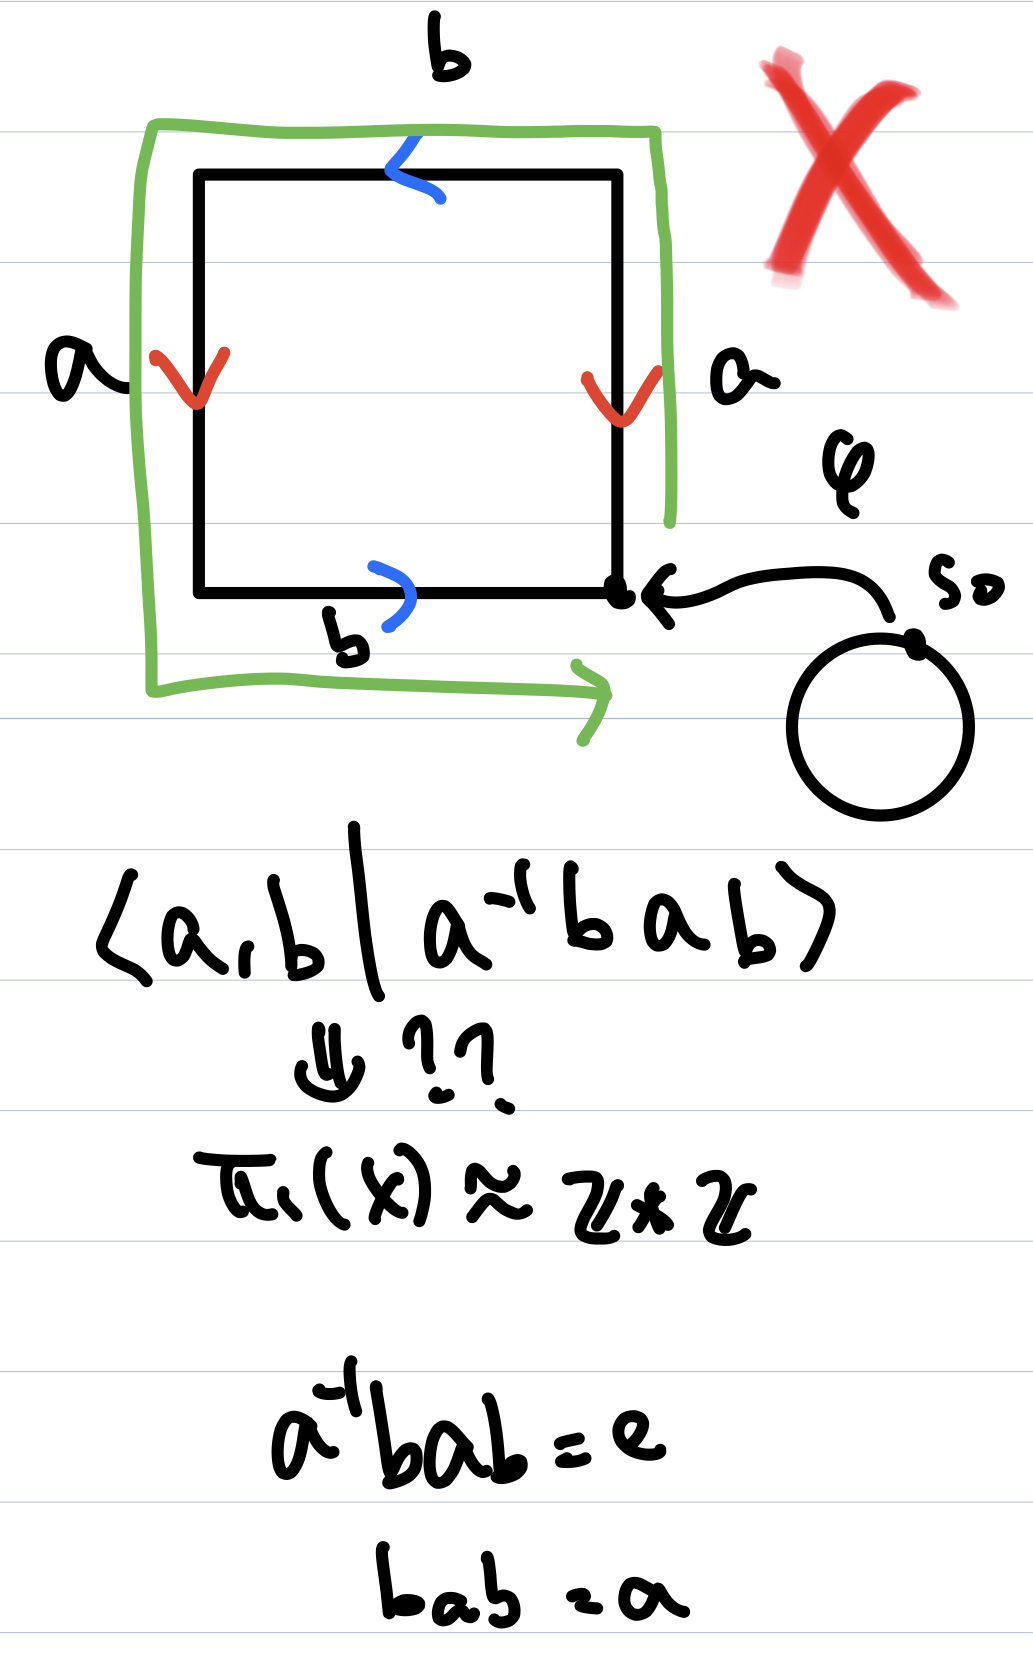 b
a
a
φ
s₀
b
⟨a,b | a⁻¹bab⟩
⇓ ??
π₁(x) ≈ ℤ * ℤ
a⁻¹bab = e
bab = a